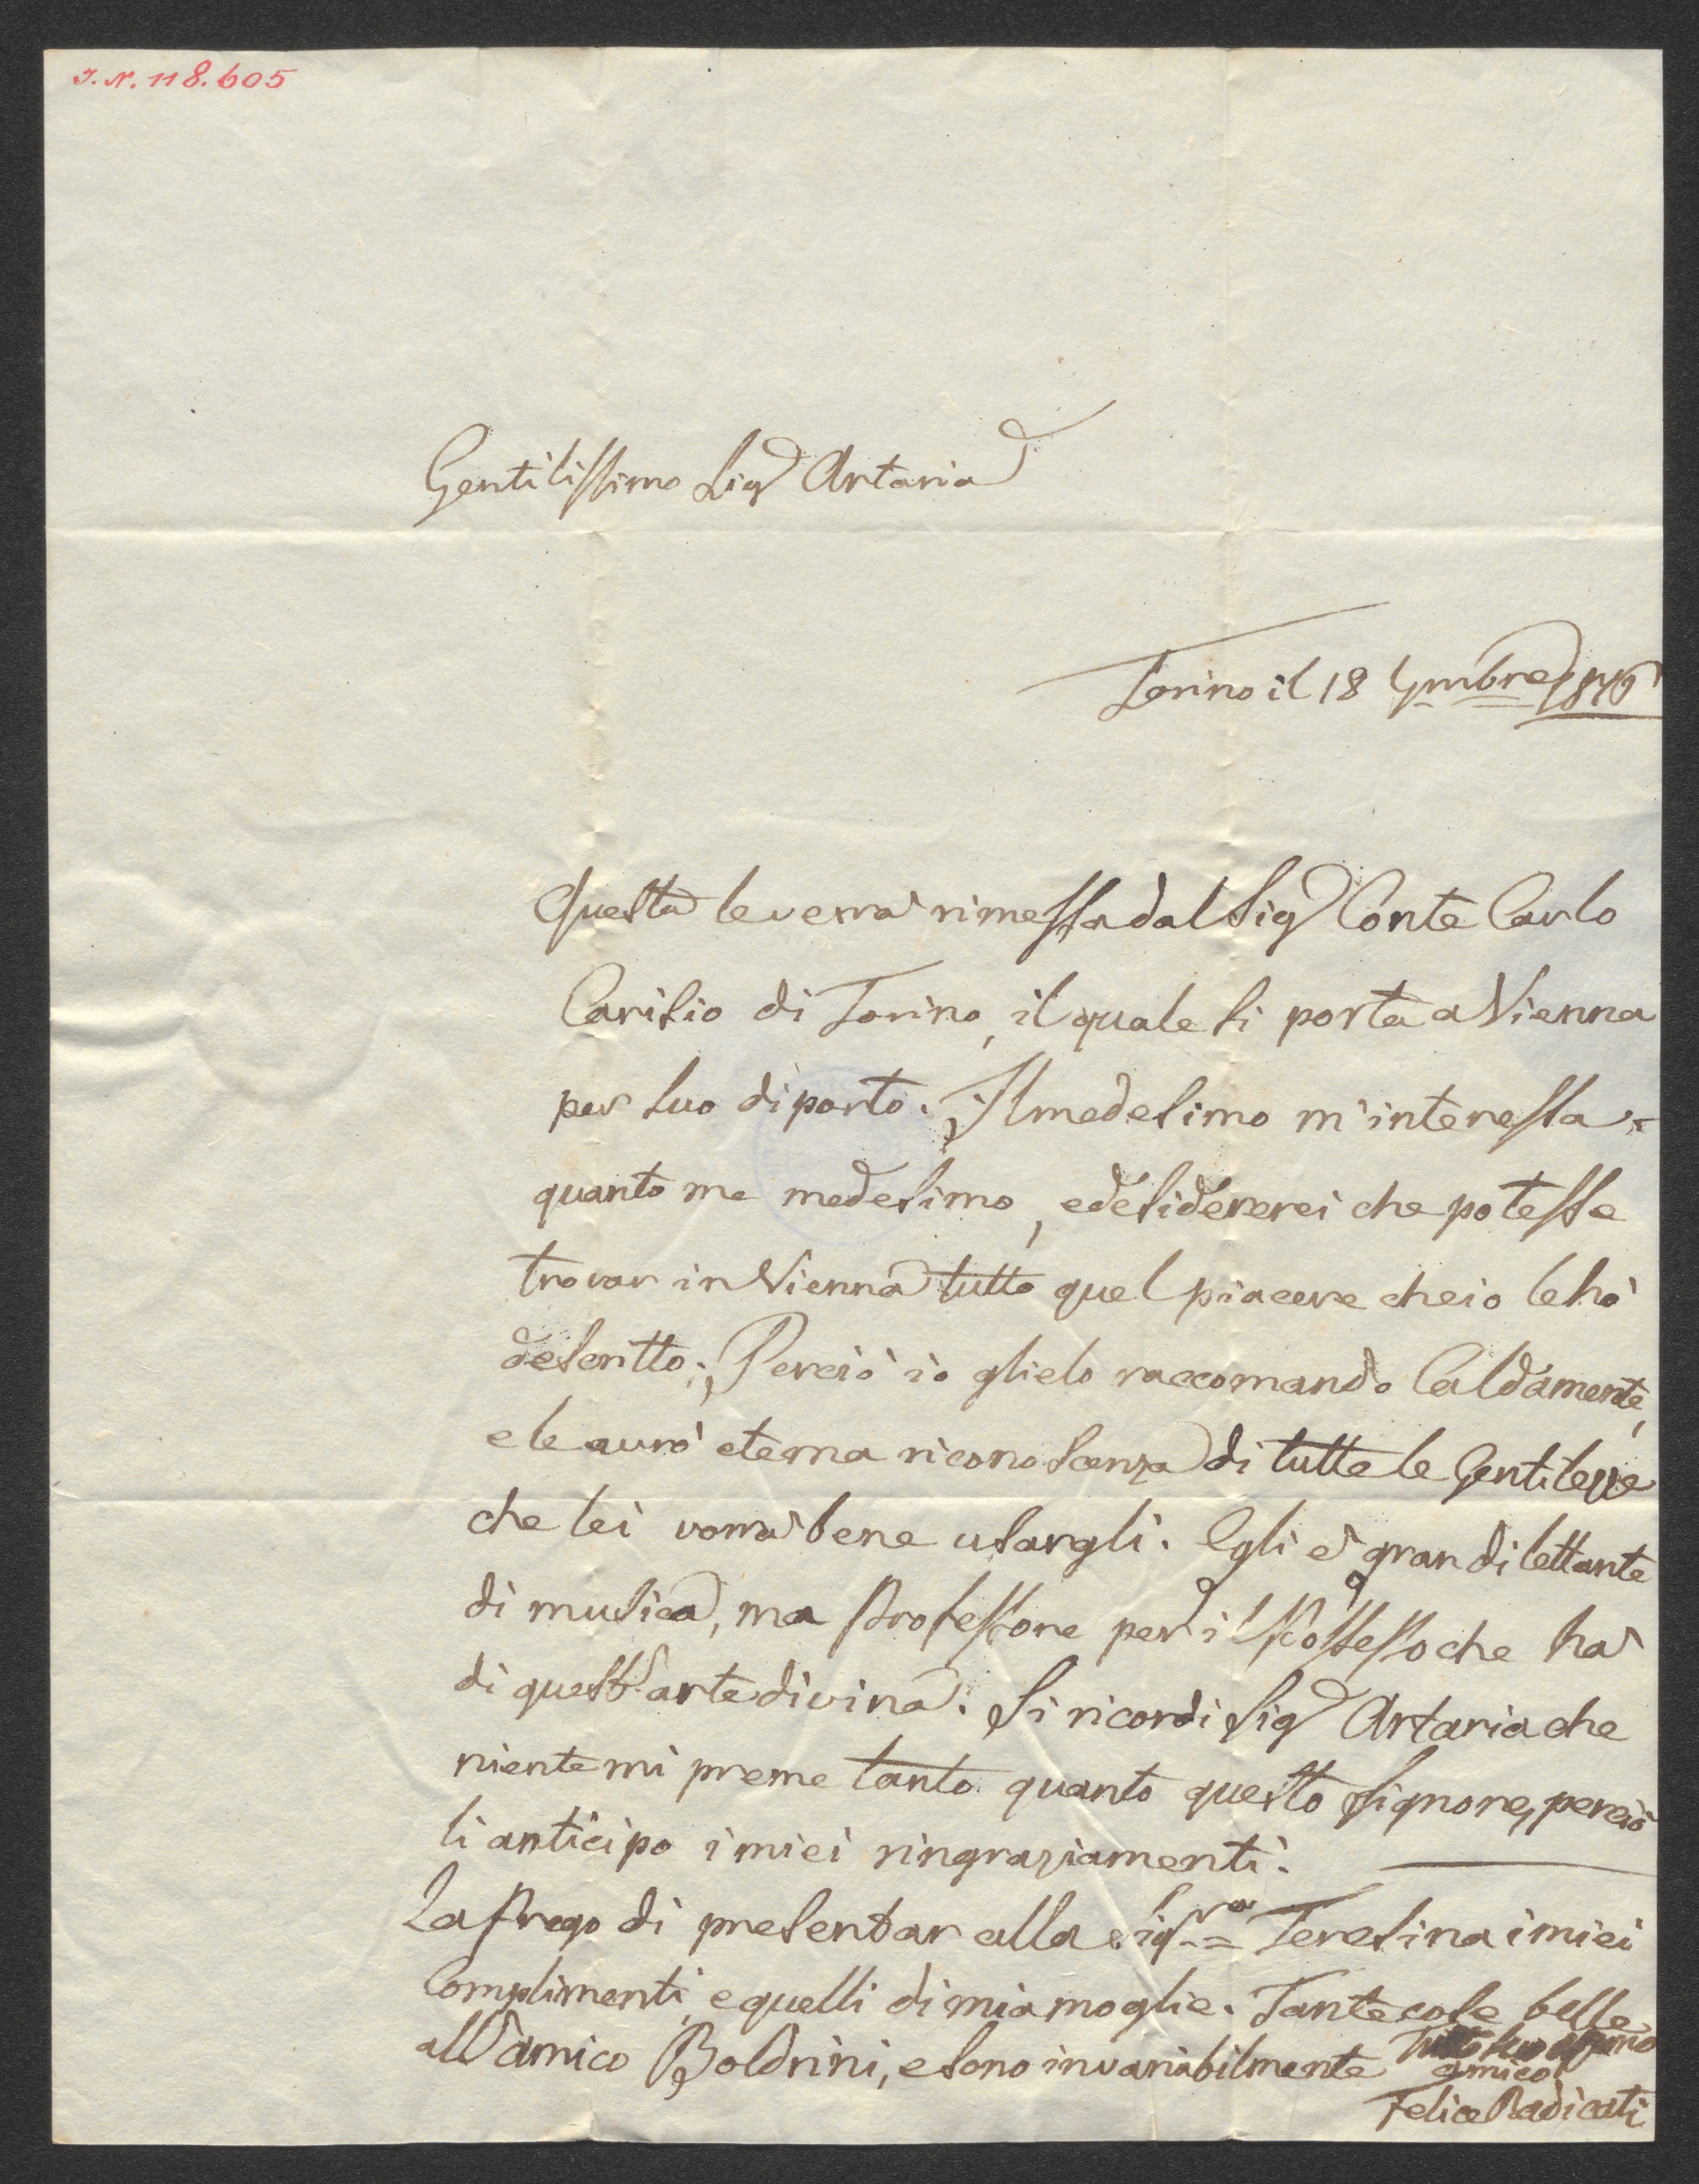 J. N. 118.605
Gentilissimo Sigr Artaria
Torino il 18 9mbre
Questa le verrà rimessa dal Sigr Conte Carlo
Carisio di Torino, il quale si porta a Vienna
per suo diporto. Il medesimo m'interessa
quanto me medesimo, e desidererei che potesse
trovar in Vienna tutto quel piacere che io le hò
descritto; Perciò io glielo raccomando Caldamente,
e le avrò eterna riconoscenza di tutte le Gentilezze
che lei vorrà bene usargli. Egli è gran dilettante
di musica, ma Professore per il Possesso che hà
di quest'arte divina. Si ricordi Sigr Artaria che
niente mi preme tanto quanto questo Signore, perciò
li anticipo i miei ringraziamenti.
La Prego di presentar alla Sigra Teresina i miei
Complimenti e quelli di mia moglie. Tante cose belle
all'amico Boldrini, e sono invariabilmente Tutto suo
amico
Felice Radicati